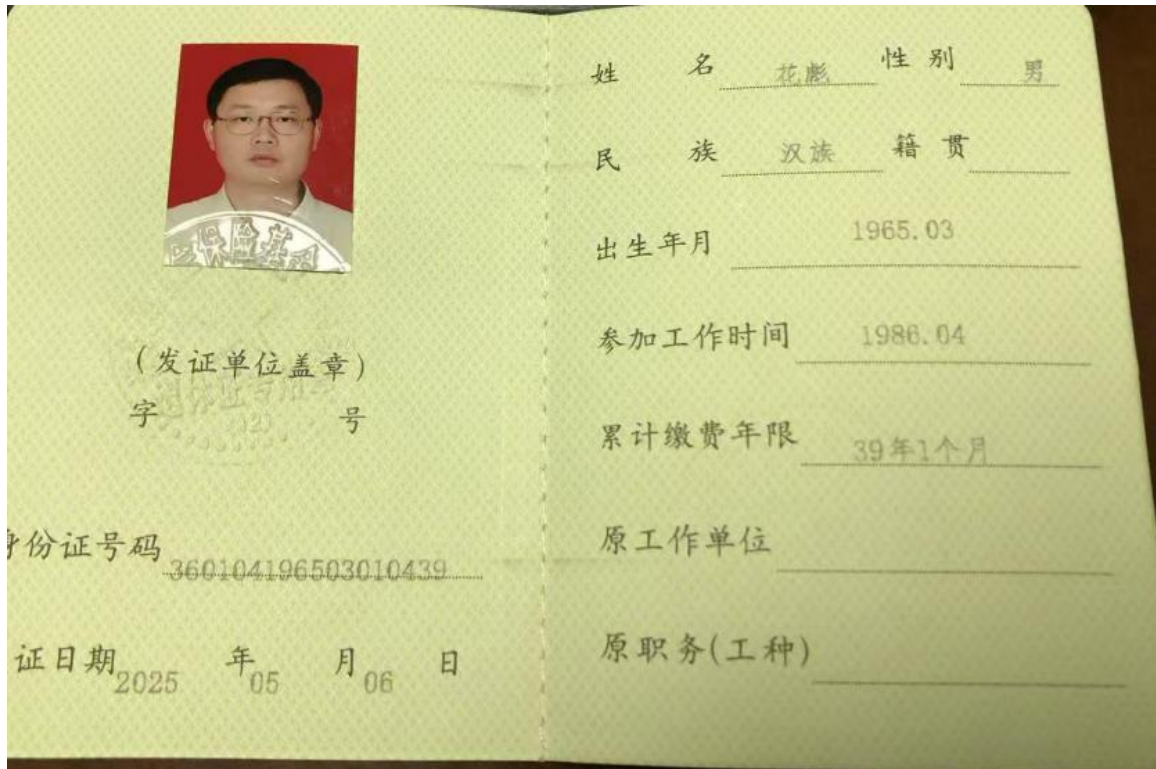 保险基
(发证单位盖章)
字 号
退休证专用章
身份证号码 360104196503010439
证日期 2025 年 05 月 06 日
姓 名 花彪 性别 男
民 族 汉族 籍贯
出生年月 1965.03
参加工作时间 1986.04
累计缴费年限 39年1个月
原工作单位
原职务(工种)